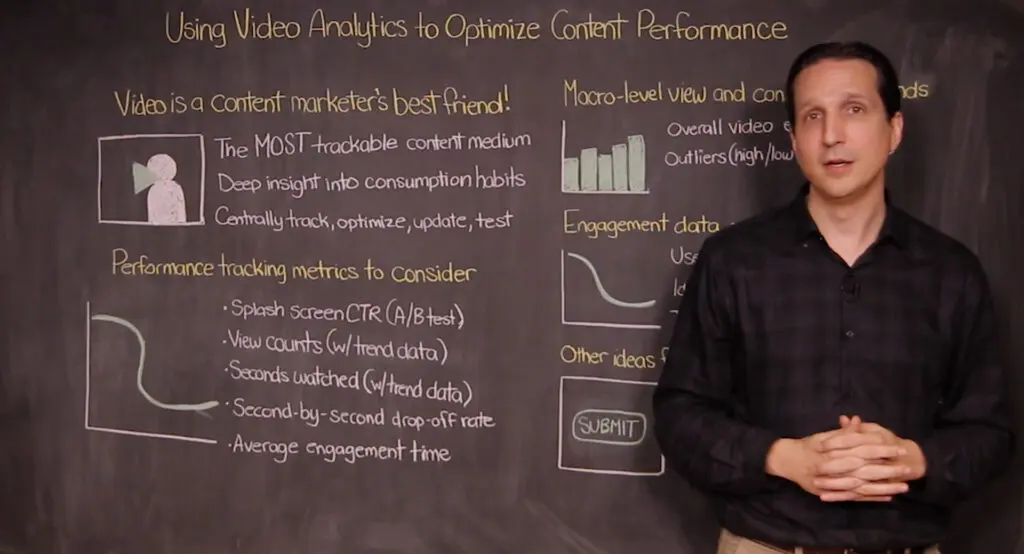 Using Video Analytics to Optimize Content Performance
Video is a content marketer's best friend!
The MOST trackable content medium
Deep insight into consumption habits
Centrally track, optimize, update, test
Performance tracking metrics to consider
• Splash screen CTR (A/B test)
• View counts (w/trend data)
• Seconds watched (w/trend data)
• Second-by-second drop-off rate
• Average engagement time
Macro-level view and
Overall video
Outliers (high/low
Engagement data
Other ideas
SUBMIT